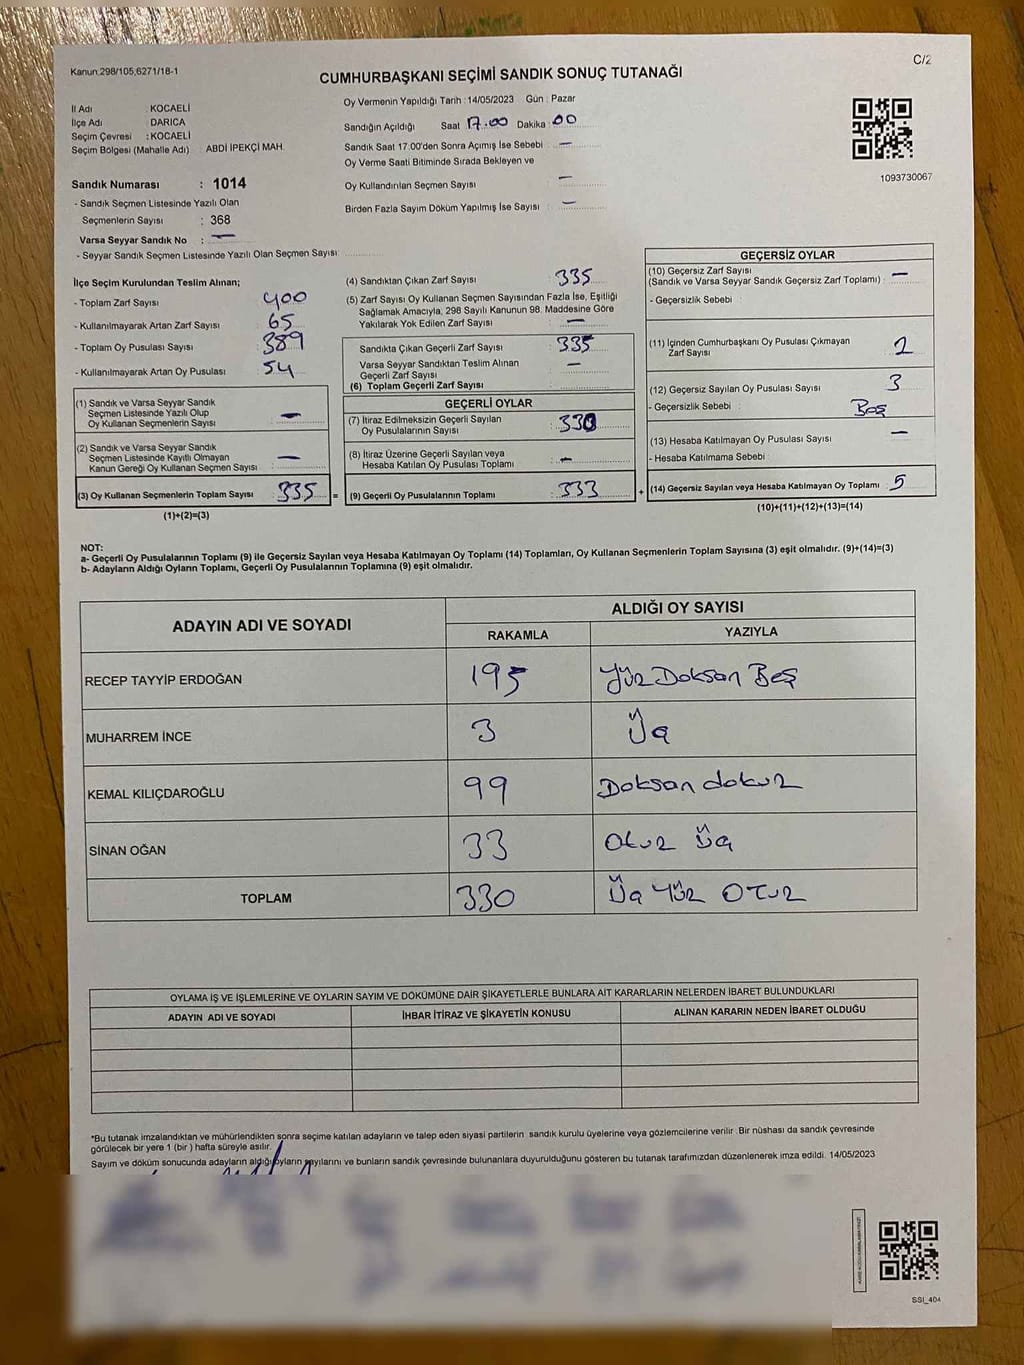 Kanun:298/105,6271/18-1
C/2
CUMHURBAŞKANI SEÇİMİ SANDIK SONUÇ TUTANAĞI
İl Adı : KOCAELİ
İlçe Adı : DARICA
Seçim Çevresi : KOCAELİ
Seçim Bölgesi (Mahalle Adı) : ABDİ İPEKÇİ MAH.
Sandık Numarası : 1014
- Sandık Seçmen Listesinde Yazılı Olan
Seçmenlerin Sayısı : 368
Varsa Seyyar Sandık No : —
- Seyyar Sandık Seçmen Listesinde Yazılı Olan Seçmen Sayısı:
Oy Vermenin Yapıldığı Tarih : 14/05/2023 Gün : Pazar
Sandığın Açıldığı Saat 17.00 Dakika : 00
Sandık Saat 17:00'den Sonra Açımış İse Sebebi : —
Oy Verme Saati Bitiminde Sırada Bekleyen ve
Oy Kullandırılan Seçmen Sayısı : —
Birden Fazla Sayım Döküm Yapılmış İse Sayısı : —
1093730067
İlçe Seçim Kurulundan Teslim Alınan;
- Toplam Zarf Sayısı : 400
- Kullanılmayarak Artan Zarf Sayısı : 65
- Toplam Oy Pusulası Sayısı : 389
- Kullanılmayarak Artan Oy Pusulası : 54
(1) Sandık ve Varsa Seyyar Sandık
Seçmen Listesinde Yazılı Olup
Oy Kullanan Seçmenlerin Sayısı : —
(2) Sandık ve Varsa Seyyar Sandık
Seçmen Listesinde Kayıtlı Olmayan
Kanun Gereği Oy Kullanan Seçmen Sayısı : —
(3) Oy Kullanan Seçmenlerin Toplam Sayısı : 335 =
(1)+(2)=(3)
(4) Sandıktan Çıkan Zarf Sayısı : 335
(5) Zarf Sayısı Oy Kullanan Seçmen Sayısından Fazla İse, Eşitliği
Sağlamak Amacıyla, 298 Sayılı Kanunun 98. Maddesine Göre
Yakılarak Yok Edilen Zarf Sayısı : —
Sandıkta Çıkan Geçerli Zarf Sayısı : 335
Varsa Seyyar Sandıktan Teslim Alınan
Geçerli Zarf Sayısı : —
(6) Toplam Geçerli Zarf Sayısı :
GEÇERLİ OYLAR
(7) İtiraz Edilmeksizin Geçerli Sayılan
Oy Pusulalarının Sayısı : 330
(8) İtiraz Üzerine Geçerli Sayılan veya
Hesaba Katılan Oy Pusulası Toplamı : —
(9) Geçerli Oy Pusulalarının Toplamı : 333 +
GEÇERSİZ OYLAR
(10) Geçersiz Zarf Sayısı
(Sandık ve Varsa Seyyar Sandık Geçersiz Zarf Toplamı) : —
- Geçersizlik Sebebi :
(11) İçinden Cumhurbaşkanı Oy Pusulası Çıkmayan
Zarf Sayısı : 2
(12) Geçersiz Sayılan Oy Pusulası Sayısı : 3
- Geçersizlik Sebebi : Boş
(13) Hesaba Katılmayan Oy Pusulası Sayısı : —
- Hesaba Katılmama Sebebi :
(14) Geçersiz Sayılan veya Hesaba Katılmayan Oy Toplamı : 5
(10)+(11)+(12)+(13)=(14)
NOT:
a- Geçerli Oy Pusulalarının Toplamı (9) ile Geçersiz Sayılan veya Hesaba Katılmayan Oy Toplamı (14) Toplamları, Oy Kullanan Seçmenlerin Toplam Sayısına (3) eşit olmalıdır. (9)+(14)=(3)
b- Adayların Aldığı Oyların Toplamı, Geçerli Oy Pusulalarının Toplamına (9) eşit olmalıdır.
ADAYIN ADI VE SOYADI
ALDIĞI OY SAYISI
RAKAMLA YAZIYLA
RECEP TAYYİP ERDOĞAN 195 Yüz Doksan Beş
MUHARREM İNCE 3 Üç
KEMAL KILIÇDAROĞLU 99 Doksan dokuz
SİNAN OĞAN 33 Otuz Üç
TOPLAM 330 Üç Yüz Otuz
OYLAMA İŞ VE İŞLEMLERİNE VE OYLARIN SAYIM VE DÖKÜMÜNE DAİR ŞİKAYETLERLE BUNLARA AİT KARARLARIN NELERDEN İBARET BULUNDUKLARI
ADAYIN ADI VE SOYADI İHBAR İTİRAZ VE ŞİKAYETİN KONUSU ALINAN KARARIN NEDEN İBARET OLDUĞU
*Bu tutanak imzalandıktan ve mühürlendikten sonra seçime katılan adayların ve talep eden siyasi partilerin sandık kurulu üyelerine veya gözlemcilerine verilir. Bir nüshası da sandık çevresinde
görülecek bir yere 1 (bir) hafta süreyle asılır.
Sayım ve döküm sonucunda adayların aldığı oyların sayılarını ve bunların sandık çevresinde bulunanlara duyurulduğunu gösteren bu tutanak tarafımızdan düzenlenerek imza edildi. 14/05/2023
SSI_404